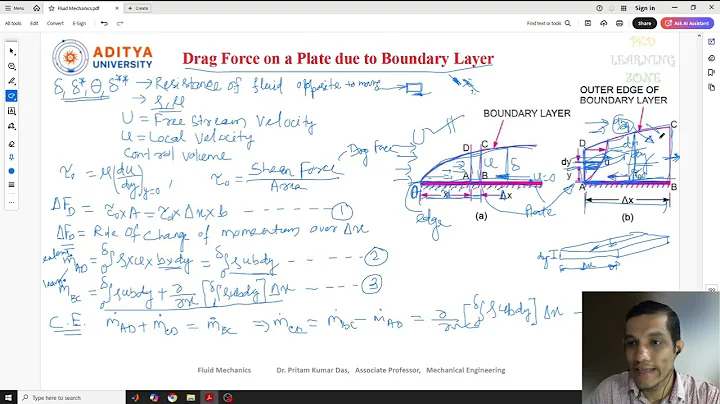 Fluid Mechanics.pdf
+ Create
Sign in
Menu
All tools Edit Convert E-Sign
Find text or tools
Share
Ask AI Assistant
ADITYA
UNIVERSITY
Drag Force on a Plate due to Boundary Layer
PKD
LEARNING
ZONE
δ, δ*, θ, δ** → Resistance of fluid opposite to moving
→ ρ, μ
U = Free Stream Velocity
u = Local Velocity
Control volume
τ₀ = μ(du/dy)y=0, τ₀ = Shear Force/Area
Drag Force
ΔF_D = τ₀ × A = τ₀ × Δx × b ------- ①
ΔF_D = Rate of Change of momentum over Δx
ṁ_AD = ∫₀^δ ρ×u×b×dy = ∫₀^δ ρubdy ------ ②
ṁ_BC = ∫₀^δ ρubdy + ∂/∂x [∫₀^δ ρubdy] Δx ----- ③
C.E. ṁ_AD + ṁ_CD = ṁ_BC ⇒ ṁ_CD = ṁ_BC - ṁ_AD = ∂/∂x [∫₀^δ ρubdy] Δx -
BOUNDARY LAYER
U
D C
u δ
u=0
A B
x
Δx
edge
(a)
Plate
OUTER EDGE OF
BOUNDARY LAYER
C
D
dy
y
A
B
Δx
(b)
dy
b
Δx
Fluid Mechanics Dr. Pritam Kumar Das, Associate Professor, Mechanical Engineering
Type here to search